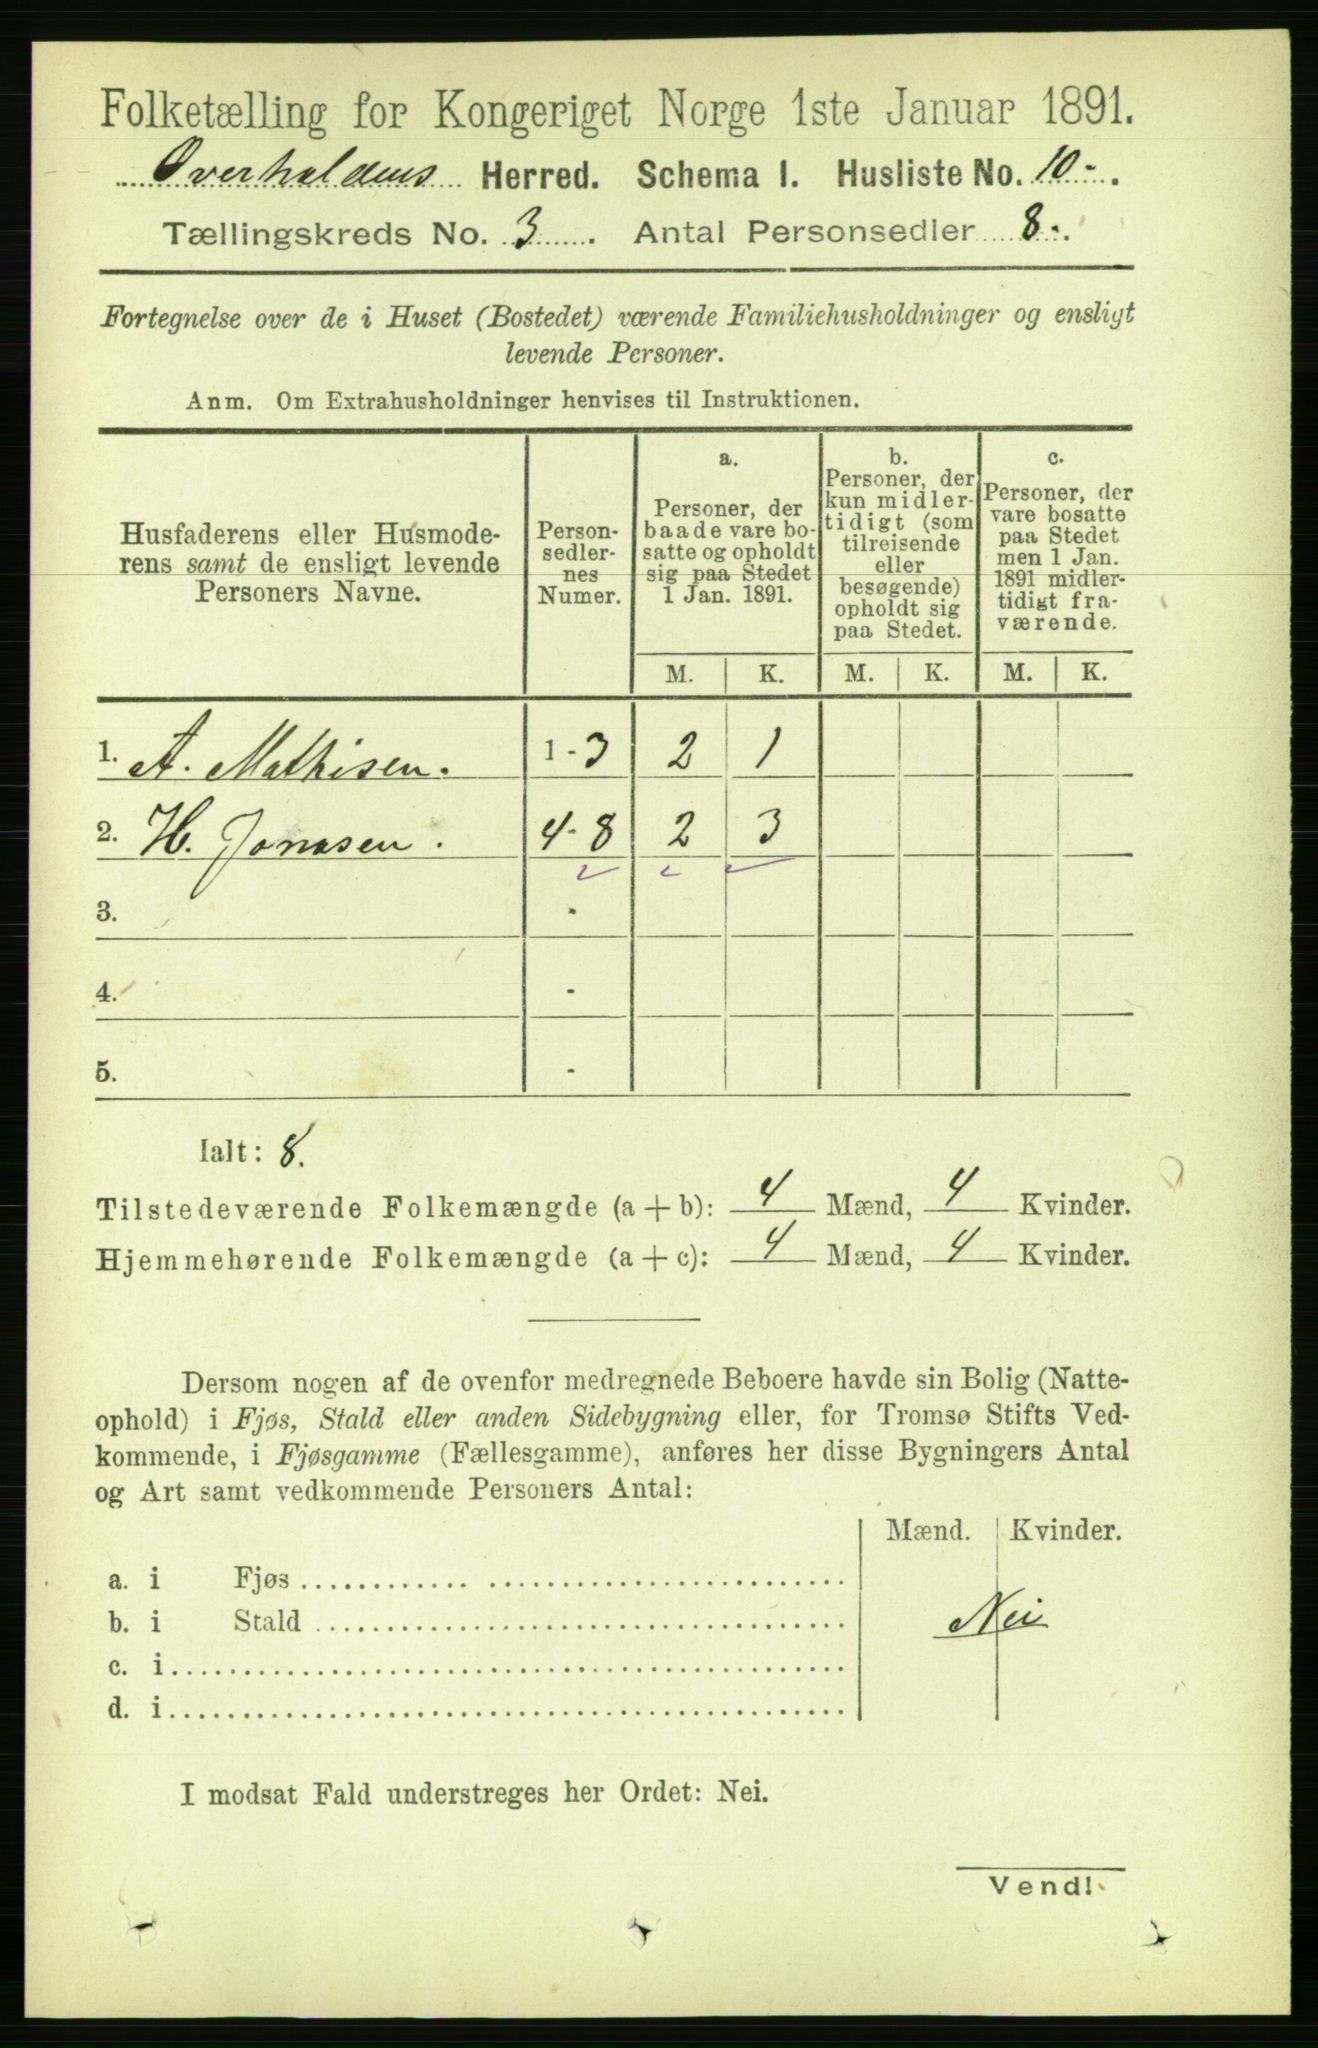 Folketælling for Kongeriget Norge 1ste Januar 1891.
Overhaldens Herred. Schema I. Husliste No. 10-.
Tællingskreds No. 3 . Antal Personsedler 8-.
Fortegnelse over de i Huset (Bostedet) værende Familiehusholdninger og ensligt
levende Personer.
Anm. Om Extrahusholdninger henvises til Instruktionen.
Husfaderens eller Husmode-
rens samt de ensligt levende
Personers Navne.
Person-
sedler-
nes
Numer.
a.
Personer, der
baade vare bo-
satte og opholdt
sig paa Stedet
1 Jan. 1891.
b.
Personer, der
kun midler-
tidigt (som
tilreisende
eller
besøgende)
opholdt sig
paa Stedet.
c.
Personer, der
vare bosatte
paa Stedet
men 1 Jan.
1891 midler-
tidigt fra-
værende.
M. K. M. K. M. K.
1. A. Mathisen. 1-3 2 1
2. H. Jonasen. 4-8 2 3
3. -
4. -
5. -
Ialt: 8.
Tilstedeværende Folkemængde (a + b): 4 Mænd, 4 Kvinder.
Hjemmehørende Folkemængde (a + c): 4 Mænd, 4 Kvinder.
Dersom nogen af de ovenfor medregnede Beboere havde sin Bolig (Natte-
ophold) i Fjøs, Stald eller anden Sidebygning eller, for Tromsø Stifts Ved-
kommende, i Fjøsgamme (Fællesgamme), anføres her disse Bygningers Antal
og Art samt vedkommende Personers Antal:
Mænd. Kvinder.
a. i Fjøs
b. i Stald Nei
c. i
d. i
I modsat Fald understreges her Ordet: Nei.
Vend!